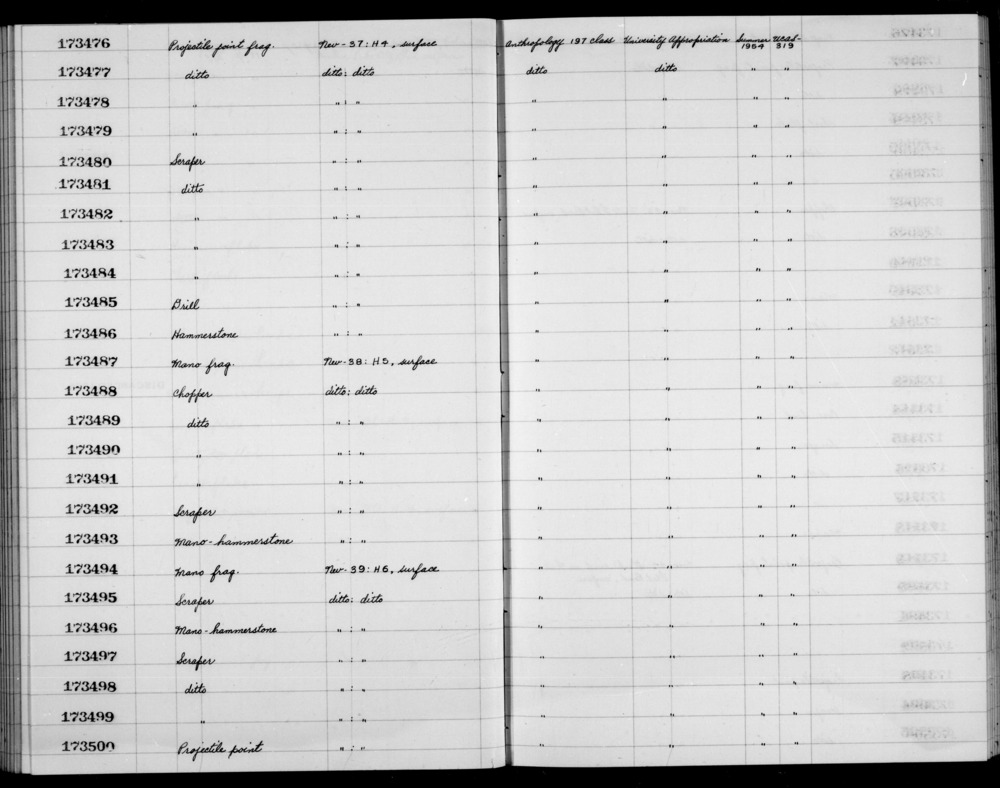 173476 Projectile point frag. Nev-37:H4, surface Anthropology 197 class University Appropriation Summer 1964 UCAS-319
173477 ditto ditto: ditto ditto ditto " "
173478 " " : " " " " "
173479 " " : " " " " "
173480 Scraper " : " " " " "
173481 ditto " : " " " " "
173482 " " : " " " " "
173483 " " : " " " " "
173484 " " : " " " " "
173485 Drill " : " " " " "
173486 Hammerstone " : " " " " "
173487 Mano frag. Nev-38: H5, surface " " " "
173488 Chopper ditto: ditto " " " "
173489 ditto " : " " " " "
173490 " " : " " " " "
173491 " " : " " " " "
173492 Scraper " : " " " " "
173493 Mano-hammerstone " : " " " " "
173494 Mano frag. Nev-39: H6, surface " " " "
173495 Scraper ditto: ditto " " " "
173496 Mano-hammerstone " : " " " " "
173497 Scraper " : " " " " "
173498 ditto " : " " " " "
173499 " " : " " " " "
173500 Projectile point " : " " " " "